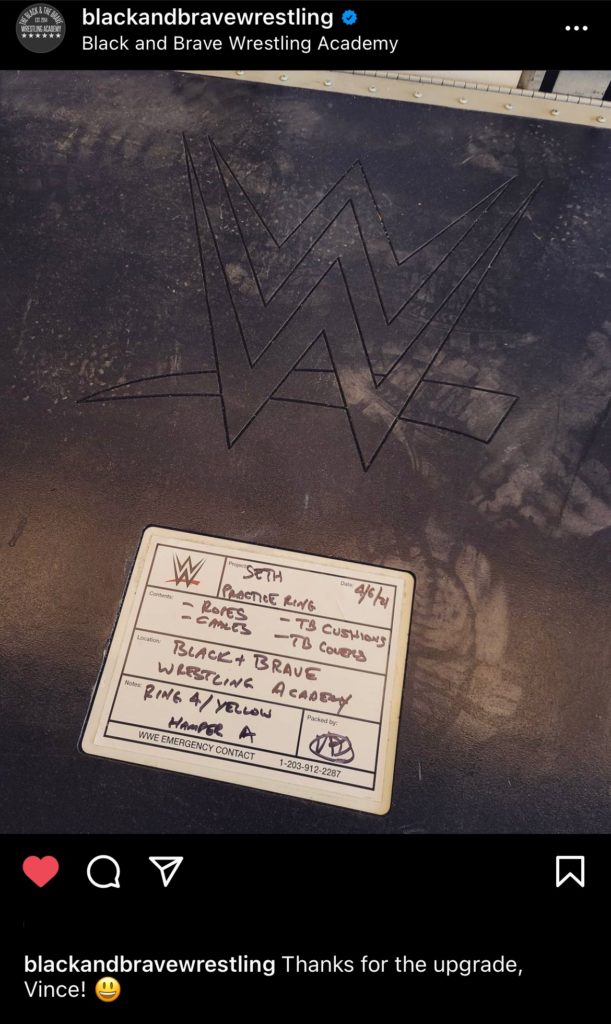 blackandbravewrestling
Black and Brave Wrestling Academy
THE BLACK & THE BRAVE
EST. 2014
WRESTLING ACADEMY
W
W
Project: SETH
PRACTICE RING
Date: 4/6/21
Contents: - ROPES
- CABLES
- TB CUSHIONS
- TB COVERS
Location: BLACK + BRAVE
WRESTLING ACADEMY
Notes: RING 4/YELLOW
HAMPER A
Packed by:
WWE EMERGENCY CONTACT 1-203-912-2287
blackandbravewrestling Thanks for the upgrade,
Vince! 😃